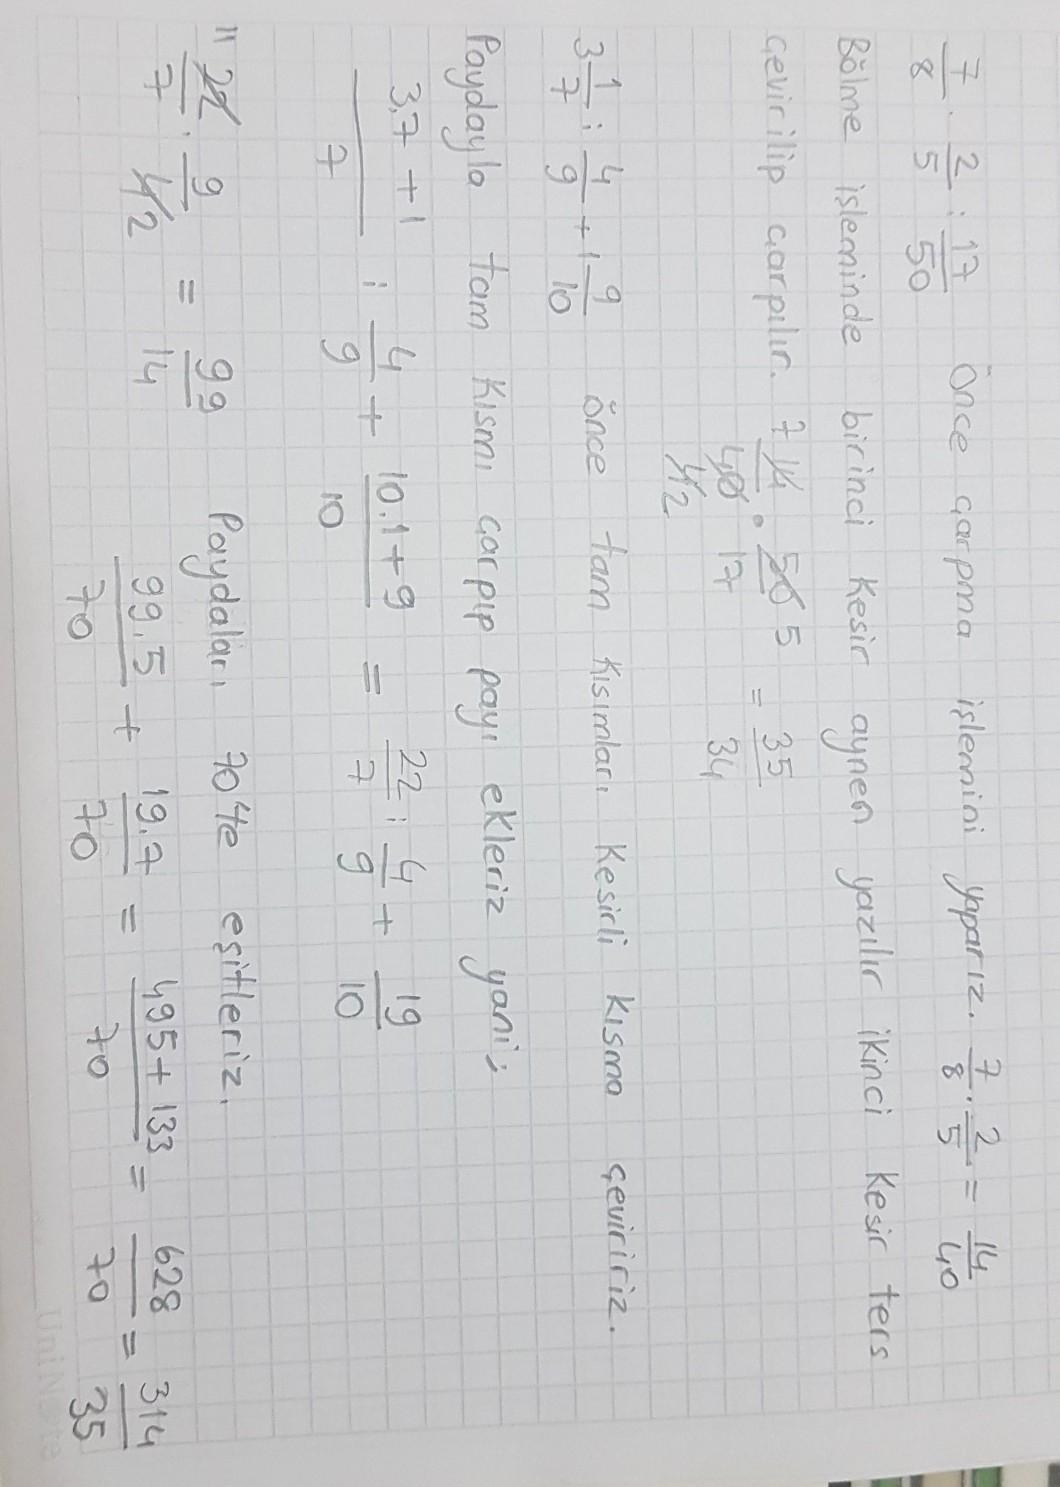 7/8 . 2/5 : 17/50 Önce çarpma işlemini yaparız. 7/8 . 2/5 = 14/40
Bölme işleminde birinci kesir aynen yazılır ikinci kesir ters
çevirilip çarpılır. 7 14/40 4 2 . 50/17 5 = 35/34
3 1/7 : 4/9 + 1 9/10 önce tam kısımları kesirli kısma çeviririz.
Paydayla tam kısmı çarpıp payı ekleriz yani;
3.7 + 1/7 : 4/9 + 10.1 + 9/10 = 22/7 : 4/9 + 19/10
11 22/7 . 9/4 2 = 99/14 Paydaları 70'te eşitleriz.
99.5/70 + 19.7/70 = 495 + 133/70 = 628/70 = 314/35